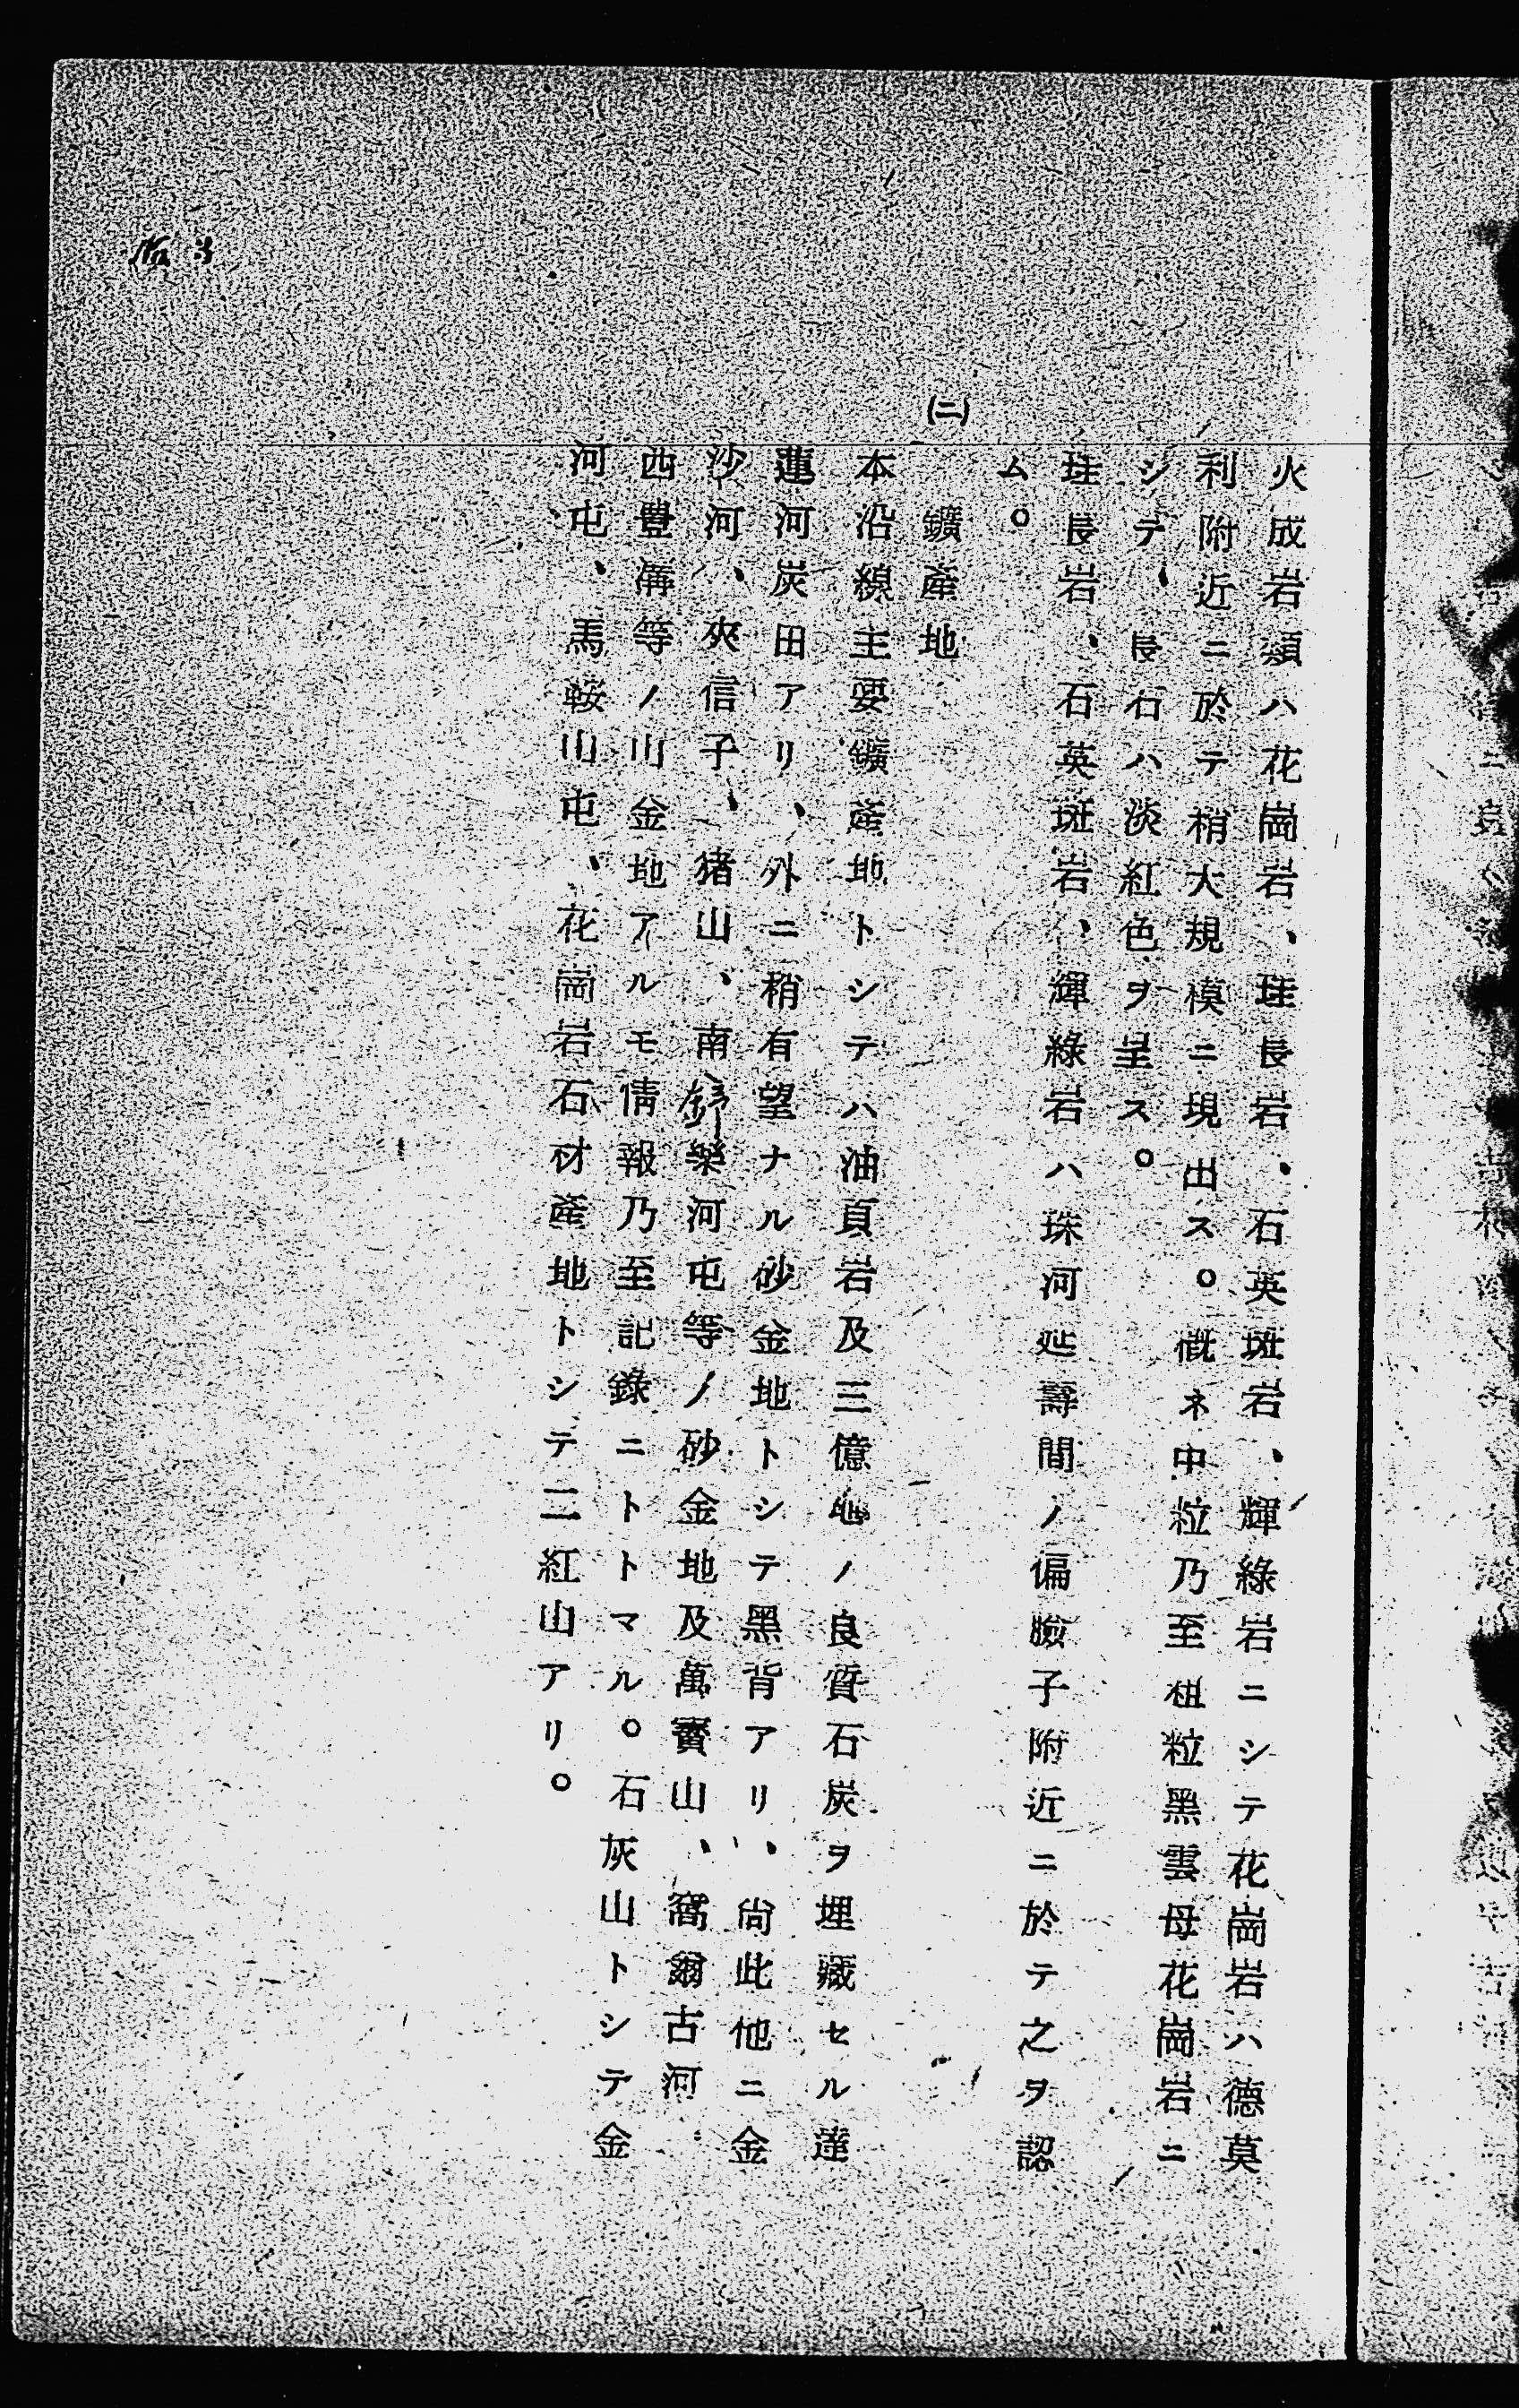 火成岩類ハ花崗岩、珪長岩、石英斑岩、輝綠岩ニシテ花崗岩ハ德莫
利附近ニ於テ稍大規模ニ現出ス。概ネ中粒乃至粗粒黑雲母花崗岩ニ
シテ、長石ハ淡紅色ヲ呈ス。
珪長岩、石英斑岩、輝綠岩ハ珠河延壽間ノ偏臉子附近ニ於テ之ヲ認
ム。
(二)鑛產地
本沿線主要鑛產地トシテハ油頁岩及三億瓲ノ良質石炭ヲ埋藏セル達
蓮河炭田アリ、外ニ稍有望ナル砂金地トシテ黑背アリ、尙此他ニ金
沙河、夾信子、猪山、南樂河屯等ノ砂金地及萬寶山、窩爾古河
西豊溝等ノ山金地アルモ情報乃至記錄ニトトマル。石灰山トシテ金
河屯、馬鞍山屯、花崗岩石材產地トシテ二紅山アリ。
No. 3